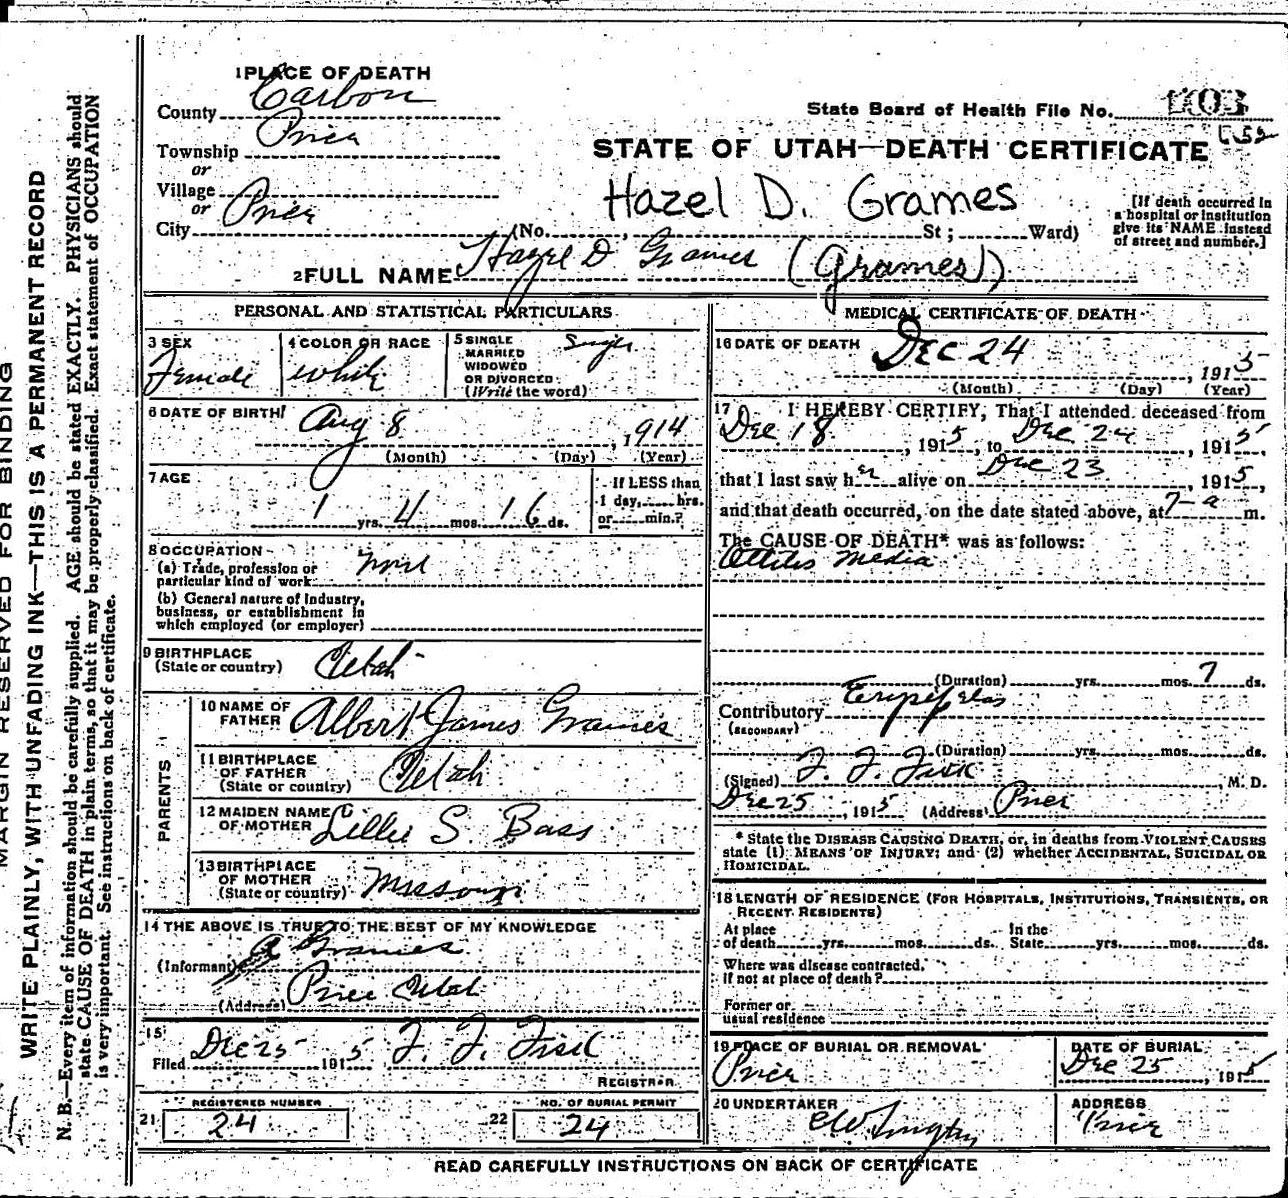 MARGIN RESERVED FOR BINDING
WRITE PLAINLY, WITH UNFADING INK—THIS IS A PERMANENT RECORD
N. B.—Every item of information should be carefully supplied. AGE should be stated EXACTLY. PHYSICIANS should
state CAUSE OF DEATH in plain terms, so that it may be properly classified. Exact statement of OCCUPATION
is very important. See instructions on back of certificate.
1 PLACE OF DEATH
County Carbon
Township Price
or
Village
or
City Price
State Board of Health File No.
STATE OF UTAH—DEATH CERTIFICATE
Hazel D. Grames
(No. , St ; Ward)
[If death occurred in
a hospital or institution
give its NAME instead
of street and number.]
2 FULL NAME Hazel D Grames (Grames)
PERSONAL AND STATISTICAL PARTICULARS
3 SEX
Female
4 COLOR OR RACE
White
5 SINGLE
MARRIED
WIDOWED
OR DIVORCED
(Write the word)
Single
6 DATE OF BIRTH
Aug 8, 1914
(Month) (Day) (Year)
7 AGE
1 yrs. 4 mos. 16 ds.
If LESS than
1 day, hrs.
or min.?
8 OCCUPATION
(a) Trade, profession or
particular kind of work
(b) General nature of industry,
business, or establishment in
which employed (or employer)
9 BIRTHPLACE
(State or country) Utah
PARENTS
10 NAME OF
FATHER Albert James Grames
11 BIRTHPLACE
OF FATHER
(State or country) Utah
12 MAIDEN NAME
OF MOTHER Lillie S. Bass
13 BIRTHPLACE
OF MOTHER
(State or country) Missouri
14 THE ABOVE IS TRUE TO THE BEST OF MY KNOWLEDGE
(Informant) A Grames
(Address) Price Utah
15
Filed Dec 25 1915 F. F. Fisk
REGISTRAR
REGISTERED NUMBER
21 24
NO. OF BURIAL PERMIT
22 24
MEDICAL CERTIFICATE OF DEATH
16 DATE OF DEATH
Dec 24, 1915
(Month) (Day) (Year)
17 I HEREBY CERTIFY, That I attended deceased from
Dec 18, 1915, to Dec 24, 1915,
that I last saw her alive on Dec 23, 1915,
and that death occurred, on the date stated above, at 7-a m.
The CAUSE OF DEATH* was as follows:
Ottitis Media
(Duration) yrs. mos. 7 ds.
Contributory
(SECONDARY)
(Duration) yrs. mos. ds.
(Signed) F. F. Fisk, M. D.
Dec 25, 1915 (Address) Price
* State the DISEASE CAUSING DEATH, or, in deaths from VIOLENT CAUSES
state (1) MEANS OF INJURY; and (2) whether ACCIDENTAL, SUICIDAL OR
HOMICIDAL.
18 LENGTH OF RESIDENCE (FOR HOSPITALS, INSTITUTIONS, TRANSIENTS, OR
RECENT RESIDENTS)
At place
of death yrs. mos. ds.
In the
State yrs. mos. ds.
Where was disease contracted,
if not at place of death?
Former or
usual residence
19 PLACE OF BURIAL OR REMOVAL
Price
DATE OF BURIAL
Dec 25, 1915
20 UNDERTAKER
ADDRESS
Price
READ CAREFULLY INSTRUCTIONS ON BACK OF CERTIFICATE